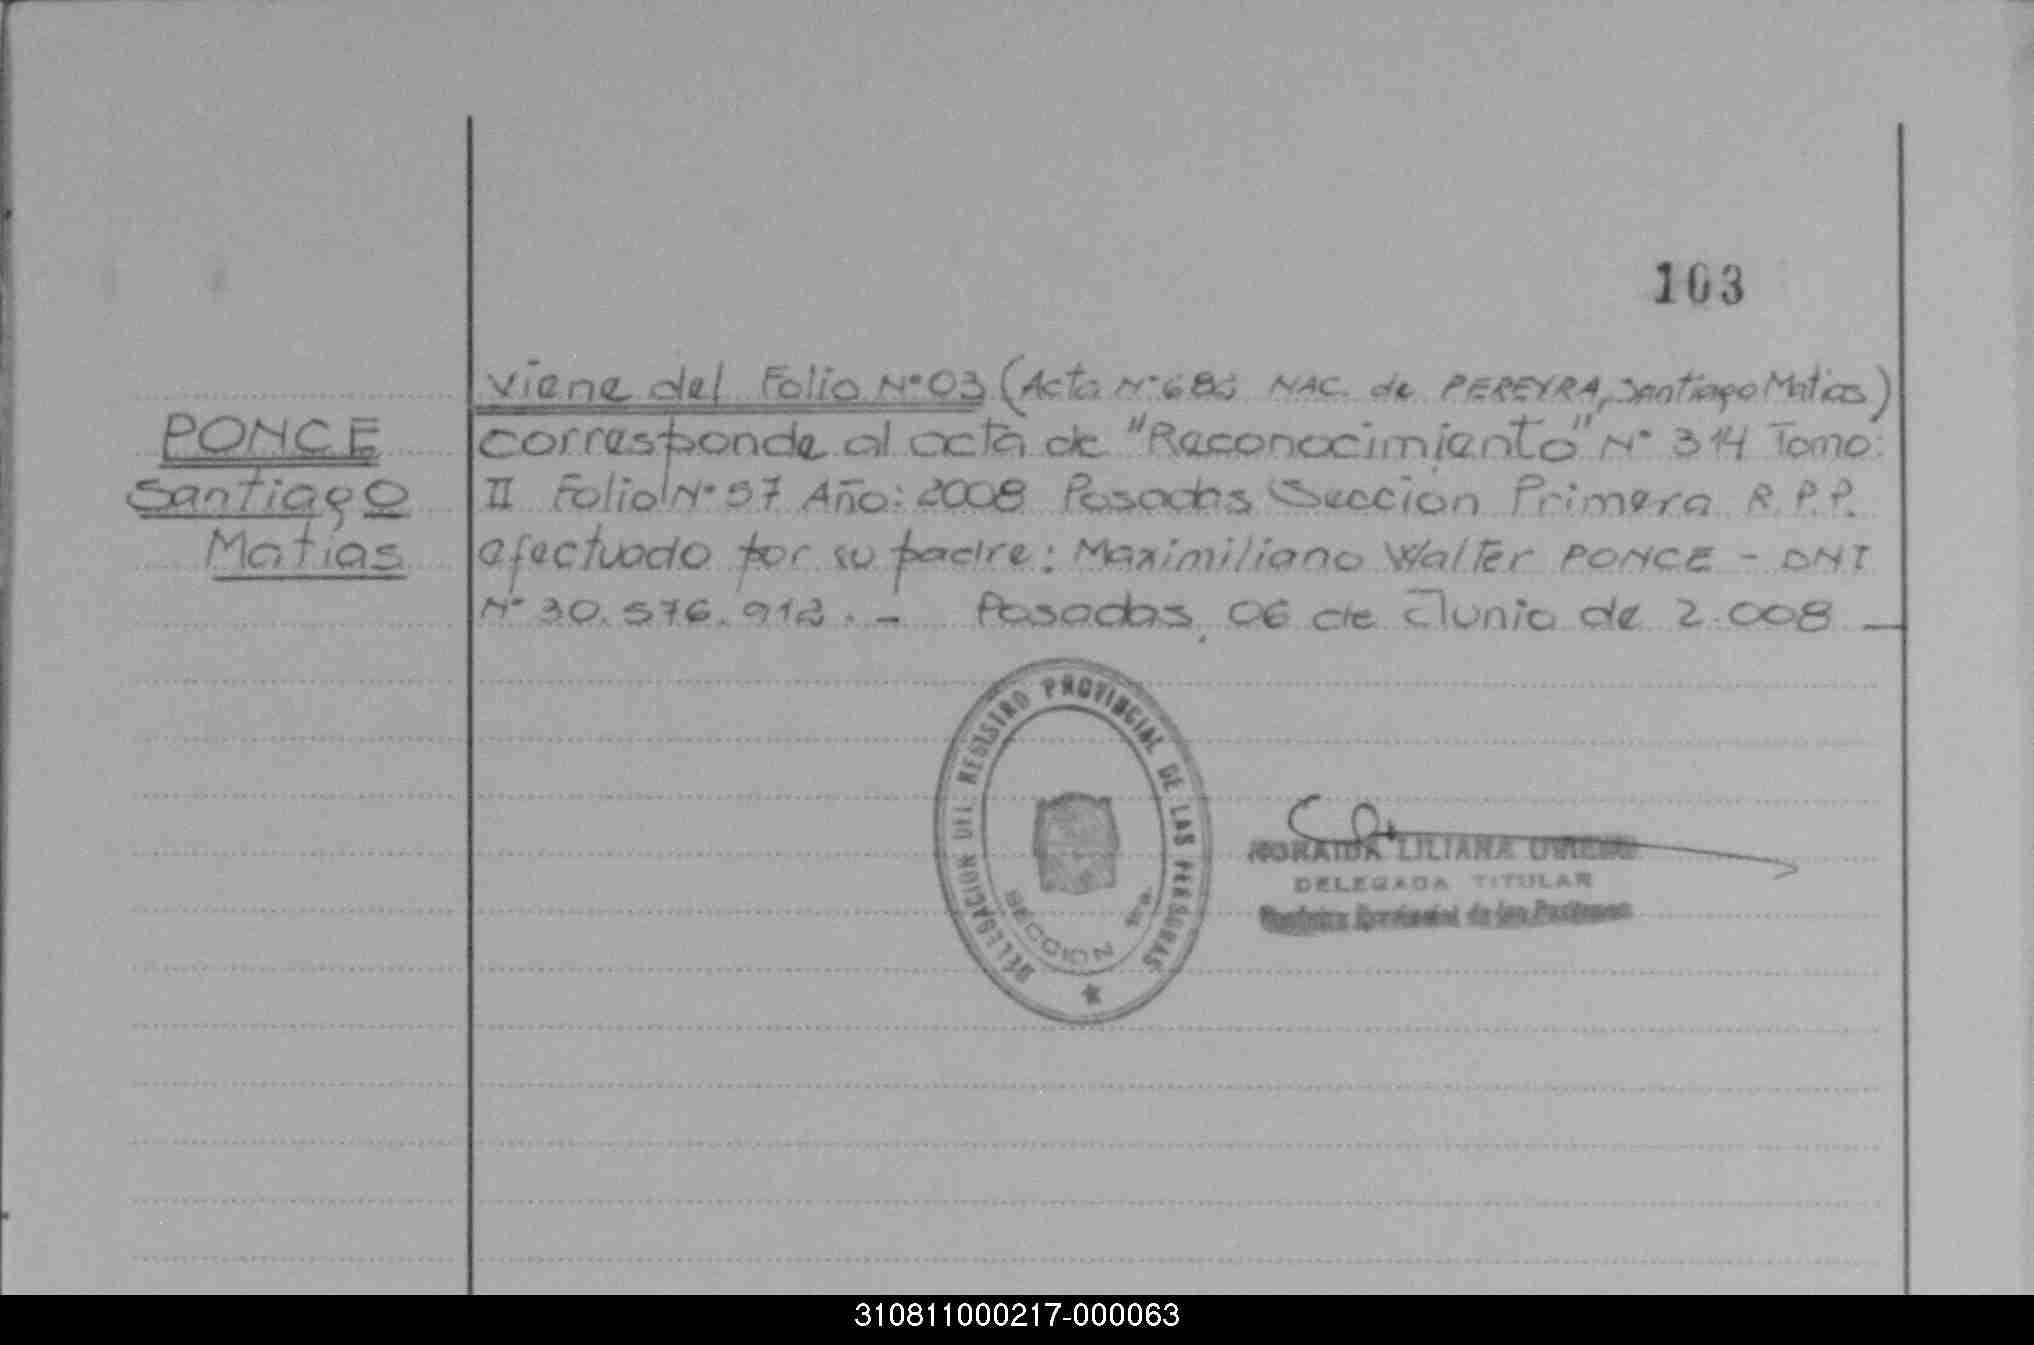 103
Viene del Folio Nº 03 (Acta Nº 686 NAC. de PEREYRA, Santiago Matias)
PONCE
Santiago
Matias
corresponde al acta de "Reconocimiento" Nº 314 Tomo:
II Folio Nº 57 Año: 2008 Posadas Sección Primera R.P.P.
efectuado por su padre: Maximiliano Walter PONCE - DNI
Nº 30.576.912. - Posadas, 06 de Junio de 2.008 —
DELEGACION DEL REGISTRO PROVINCIAL DE LAS PERSONAS
SECCION 1ra.
LILIANA
DELEGADA TITULAR
Registro Provincial de las Personas
310811000217-000063